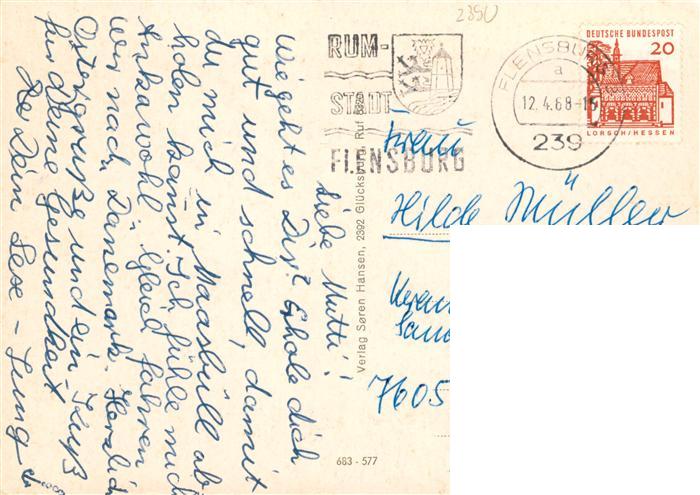 2390
Liebe Mutti!
Wie geht es Dir? Erhole dich
gut und schnell, damit
du mich in Maasbüll ab-
holen kannst. Ich fühle mich
wohl. Gleich fahren
wir nach Dänemark. Herzliche
Ostergrüße und ein Kuß
für Deine Gesundheit
Dein
RUM-
STADT
FLENSBURG
FLENSBURG
a
12.4.68-15
239
DEUTSCHE BUNDESPOST
20
LORSCH/HESSEN
Verlag Søren Hansen, 2392 Glücksburg, Ruf
Frau
Hilde Müller
7605
683 - 577